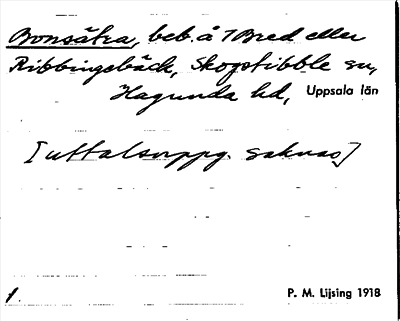 Bonsätra, beb. å 7 Bred eller
Ribbingebäck, Skogstibble sn,
Hagunda hd, Uppsala län
[uttalsuppg. saknas]
1.
P. M. Lijsing 1918